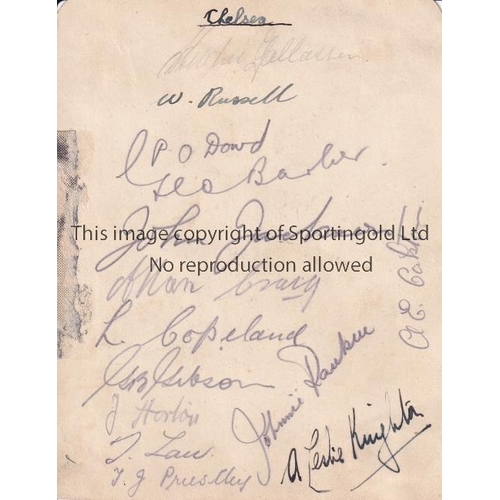 Chelsea
Hughie Gallacher
W. Russell
P O Dowd
Geo Barber
John Jackson
Allan Craig
L. Copeland
G B Gibson
J Horton
T. Law
T. J Priestley
Johnnie Rankin
A Leslie Knighton
This image is copyright of Sportingold Ltd
No reproduction allowed